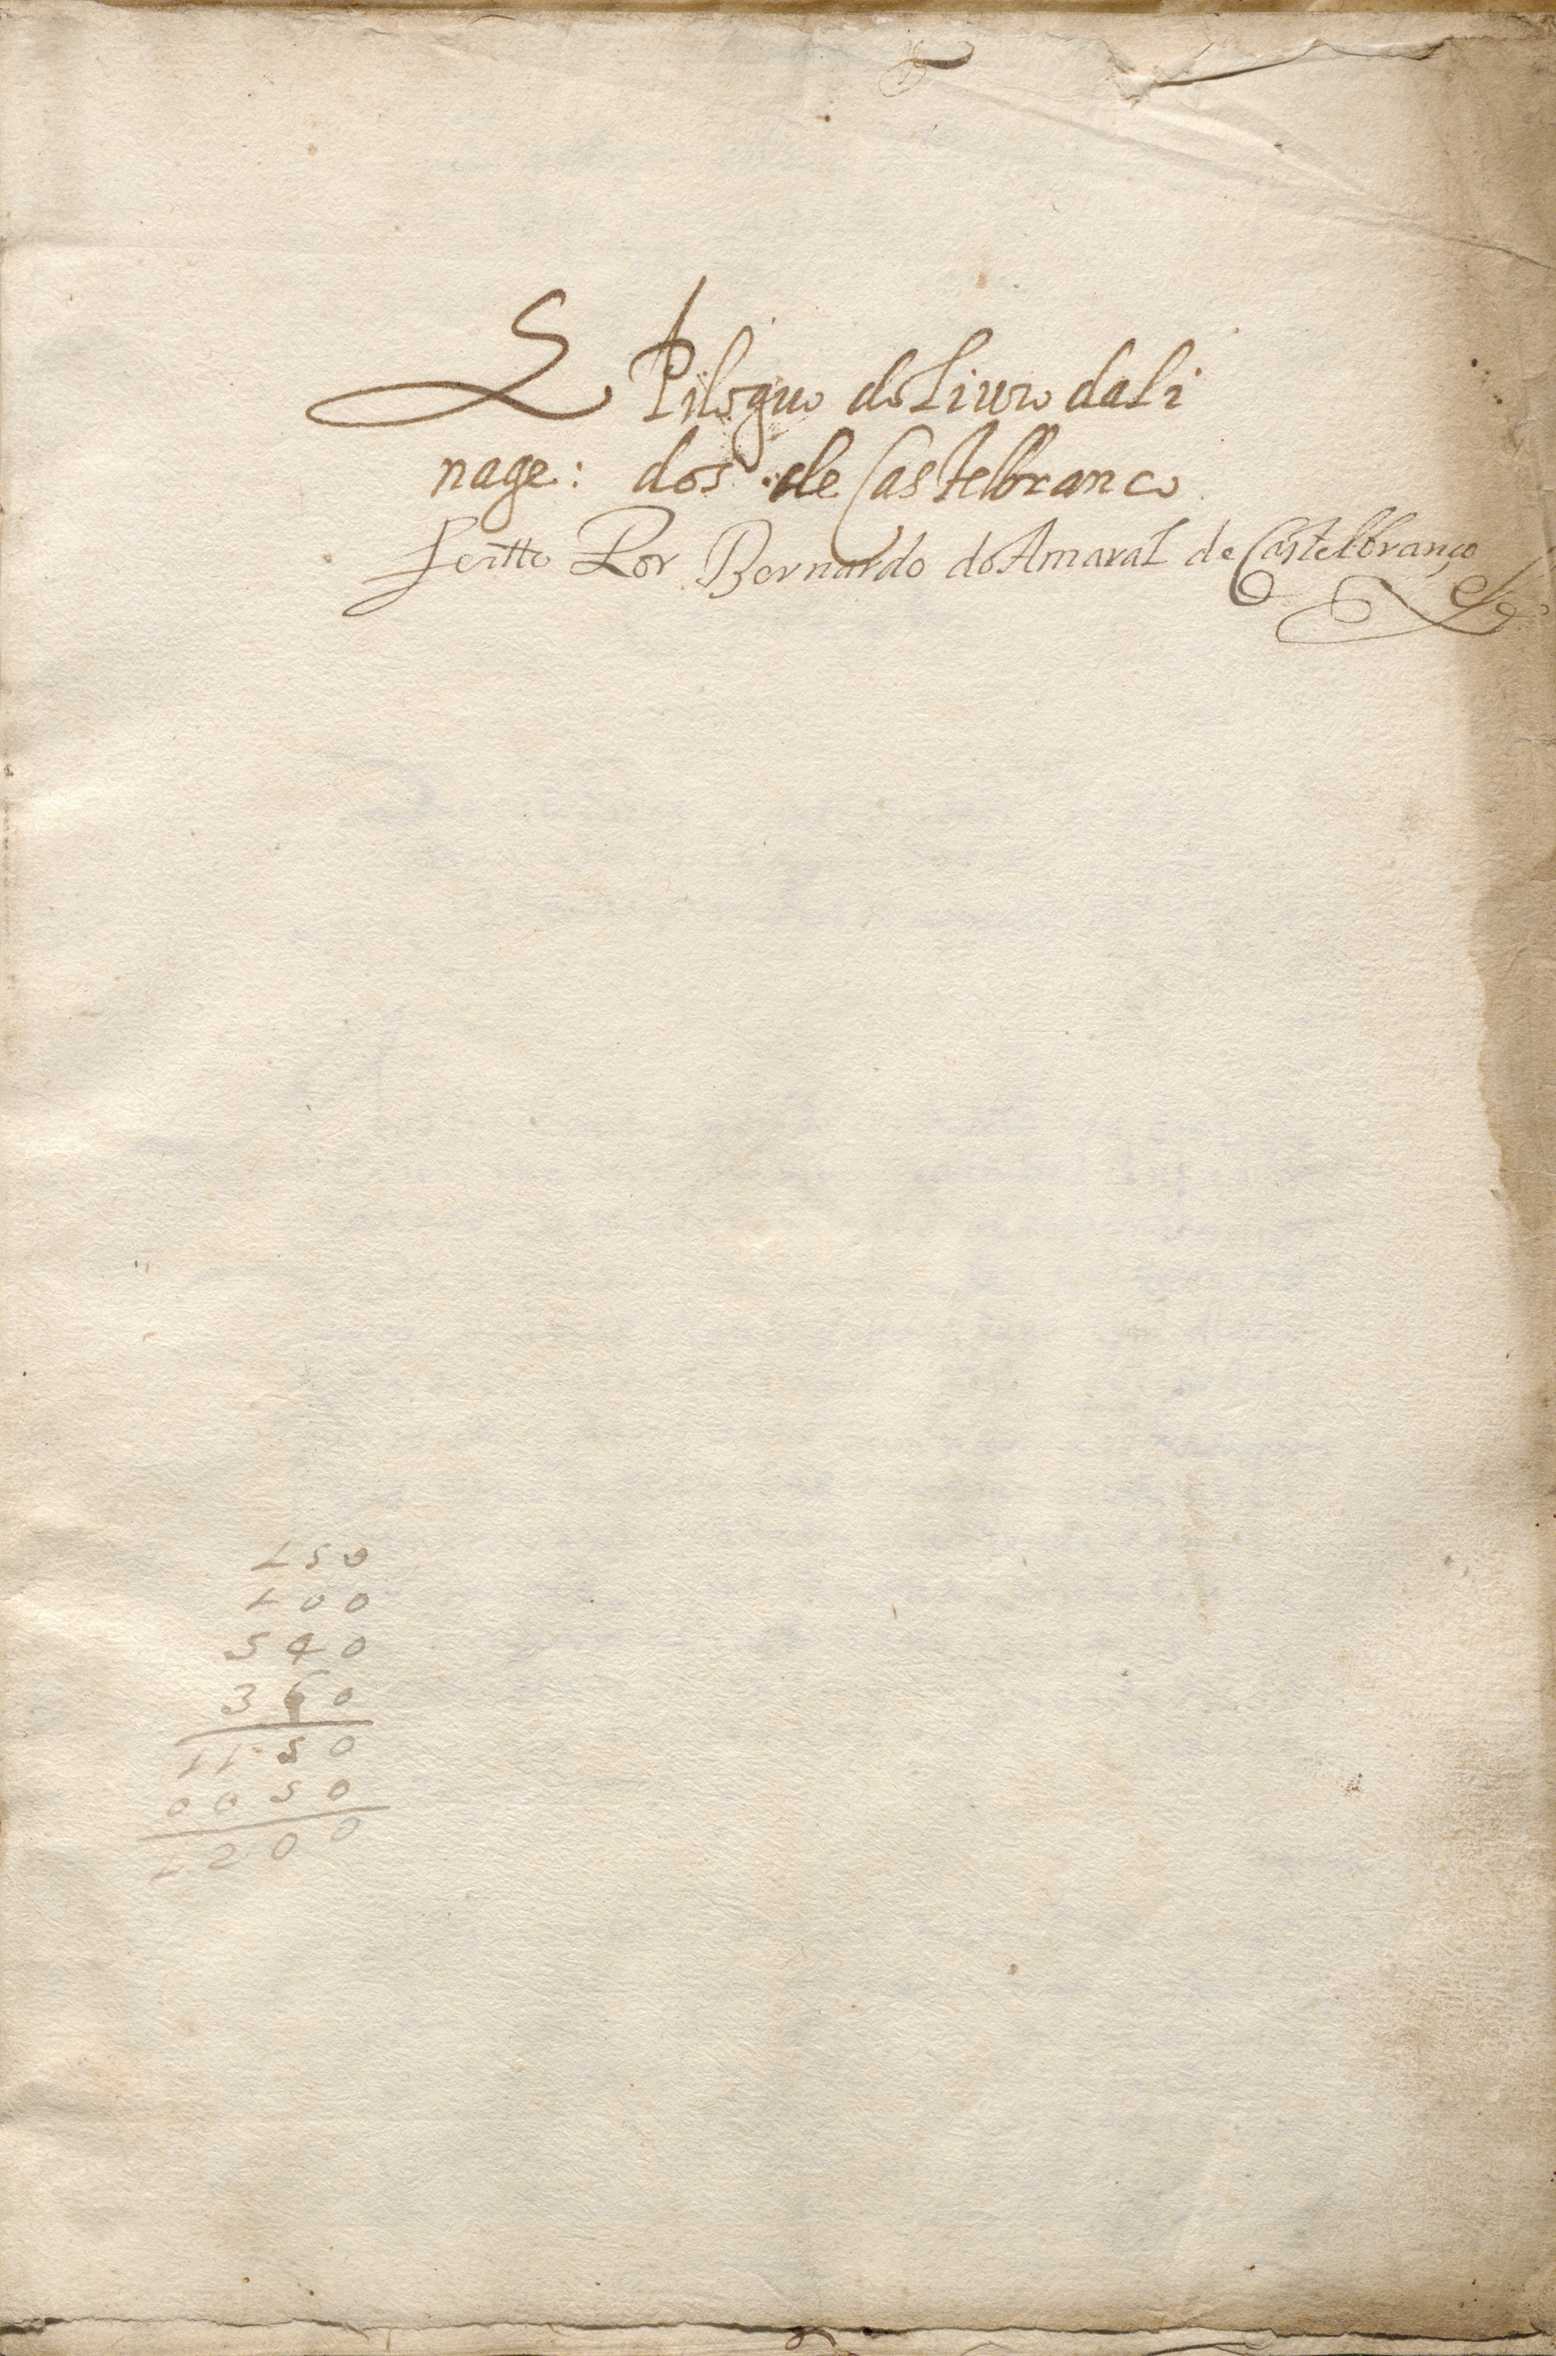 EPiloguo do Liuro da Li
nage: dos de Castelbranco
Scritto Por Bernardo do Amaral de Castelbranco
150
100
540
360
1150
0050
1200